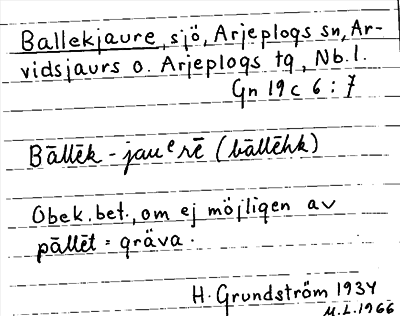 Ballekjaure, sjö, Arjeplogs sn, Ar-
vidsjaurs o. Arjeplogs tg, Nb. l.
Gn 19 c 6 : 7
Bāllēk - jauᵉrē (bāllēhk)
Obek. bet., om ej möjligen av
pāllēt = gräva.
H. Grundström 1934
M.L. 1966